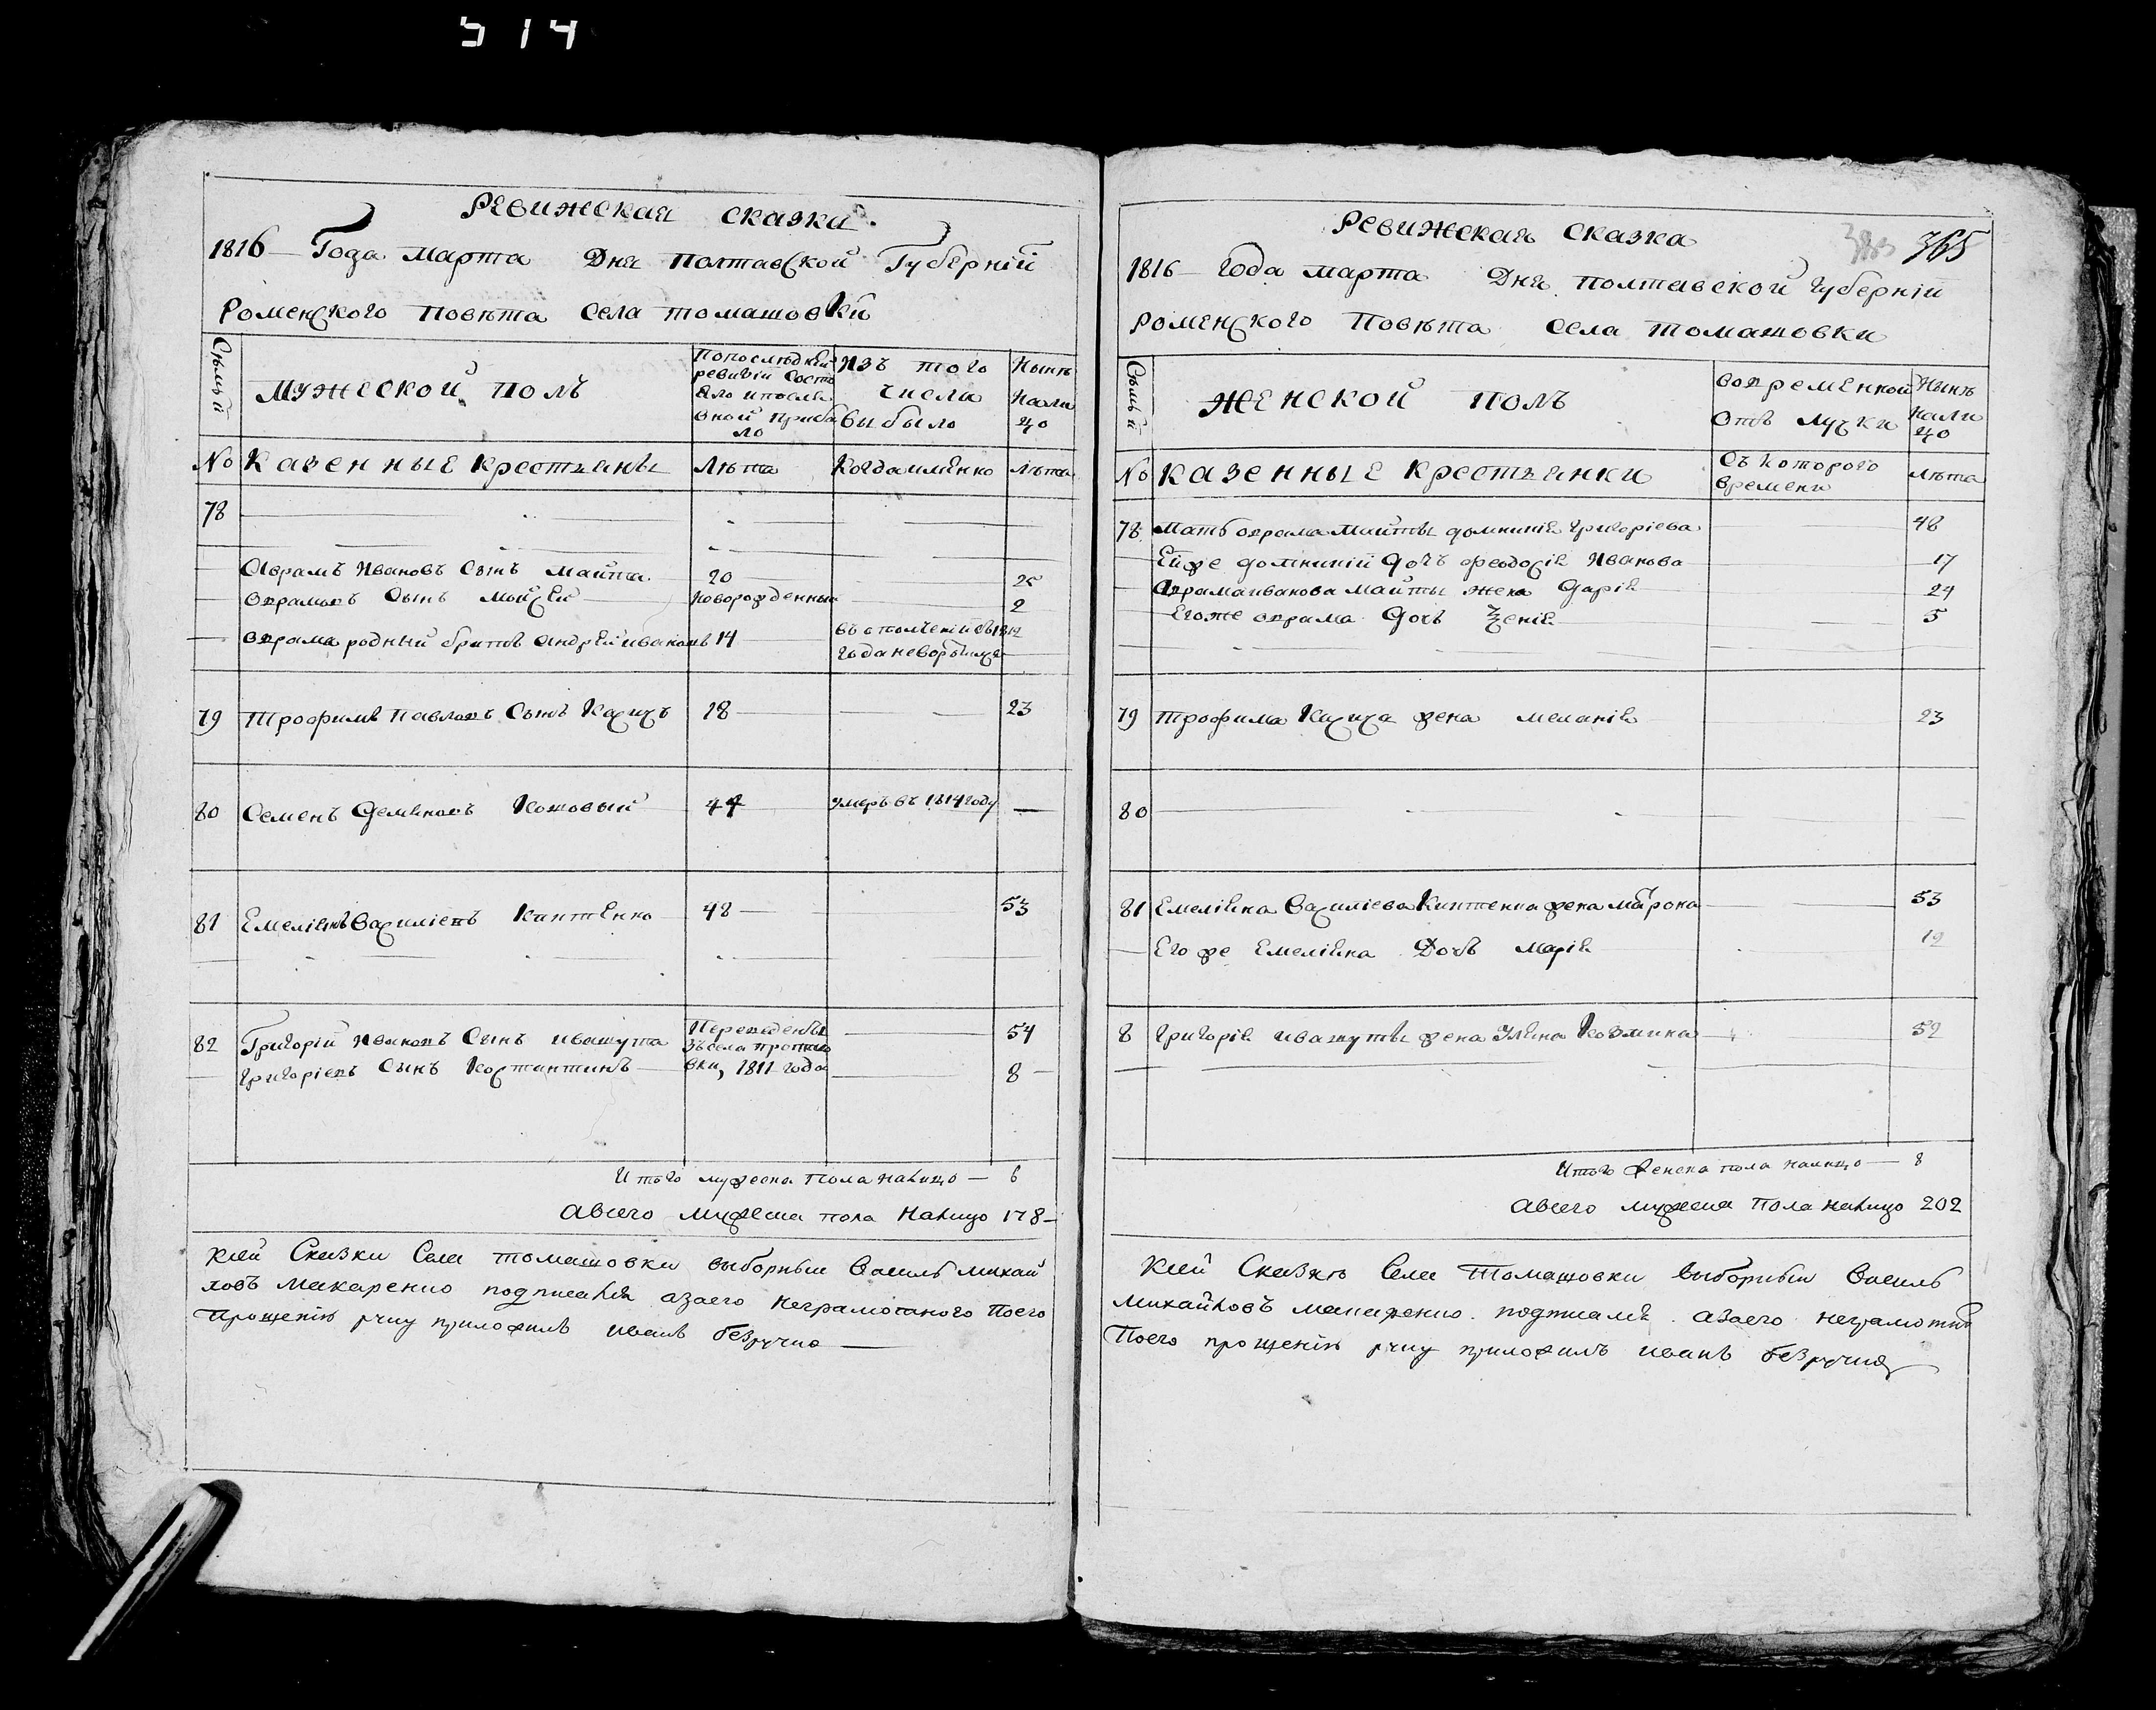 514
Ревижская сказка
1816 Года марта Дня полтавской Губерній
Роменского повѣта села томашовки
Сѣмьй
мужеской полъ
Попослѣдней ревизіи состо яло ипосле оной прибы ло
Изъ того числа выбыло
Нынѣ нали цо
No
Казенные крестьяны
Лѣта
Когда имѣнно
лѣта
78
Аврамъ Ивановъ Сынъ майта 20 25
аврамовъ Сынъ мойсей новорожденный 2
аврама родный братъ андрей ивановъ 14 въ ополченій съ 1812 года неворотился
79 Трофимъ Павловъ Сынъ 18 23
80 Семенъ Семеновъ Кошовый 44 умеръ въ 1814 году —
81 Емеліянъ Василіевъ Киптенко 48 53
82 Григорій Ивановъ Сынъ ивашута Переведенъ 54
зъ села
Григоріевъ Сынъ Костантинъ вки, 1811 года 8
Итого мужеска пола налицо — 6
Авсего мужеска пола налицо 178
Ксей Сказки Села томашовки выборный Василь михай
ловъ Макаренко подписался азаего неграмотного поего
Прошенію руку приложилъ иванъ безручко
Ревижская сказка
365
1816 Года марта Дня полтавской губерніи
Роменского Повѣта села томашовки
Сѣмьй
женской полъ
вовременной отъ лучки
Нынѣ нали цо
No
казенные крестьянки
Съ которого времени
лѣта
78 Мать аврама Майты домникія григоріева 48
Ейже домникіи дочь феодосія Иванова 17
Аврама иванова майты жена дарія 24
Егоже аврама дочь 5
79 трофима жена меланія 23
80
81 Емеліяна Василіева Киптенка жена 53
Егоже Емеліяна Дочь марія 19
8 григорія ивашуты жена Уляна Козмина 52
Итого женска пола налицо — 8
Авсего пола налицо 202
Ксей Сказкѣ Села Томашовки выборный Василь
михайловъ макаренко подписалъ азаего неграмотна
Поего прошенію руку приложилъ иванъ безручко